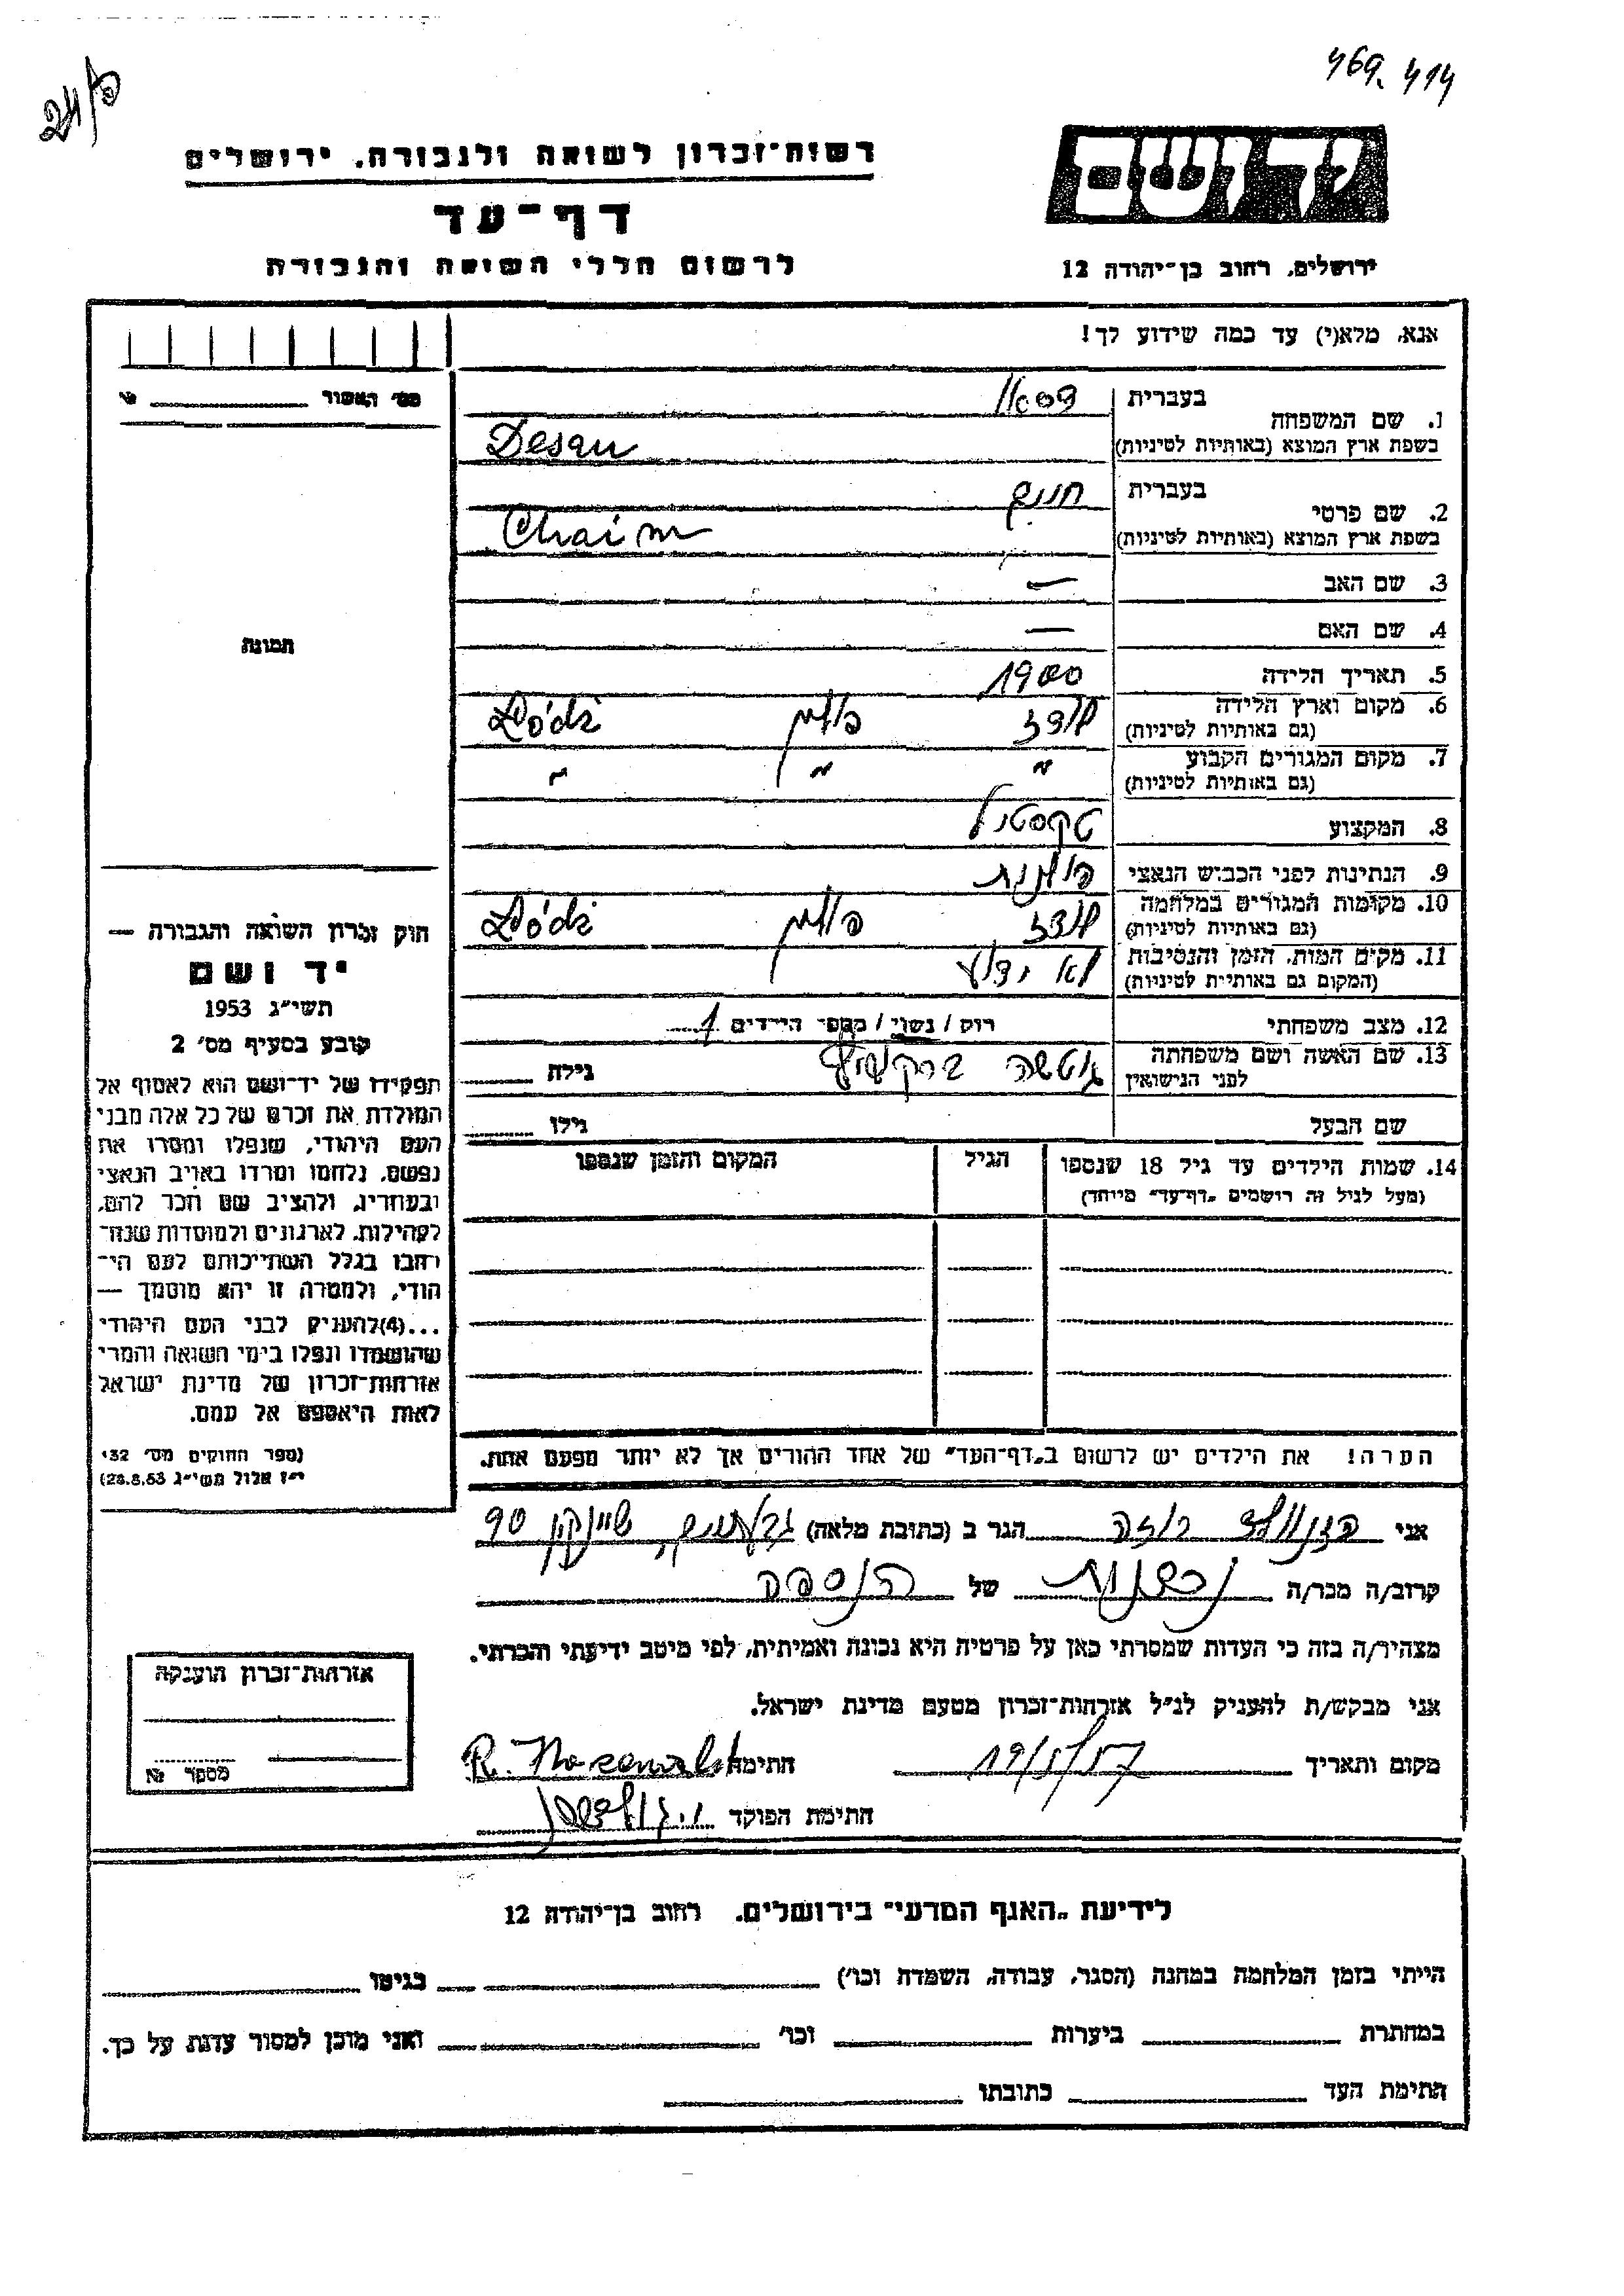 469.414
24/פ
רשות־זכרון לשואה ולגבורה, ירושלים
דף־עד
לרשום חללי השואה והגבורה
יד ושם
ירושלים, רחוב בן־יהודה 12
אנא, מלא(י) עד כמה שידוע לך!
מס' האשור
1. שם המשפחה
בעברית
בשפת ארץ המוצא (באותיות לטיניות) Desau
2. שם פרטי
בעברית חיים
בשפת ארץ המוצא (באותיות לטיניות) Chaim
3. שם האב —
4. שם האם —
תמונה
5. תאריך הלידה 1900
6. מקום וארץ הלידה (גם באותיות לטיניות) לודז פולין Łódź
7. מקום המגורים הקבוע (גם באותיות לטיניות) " " "
8. המקצוע טקסטיל
9. הנתינות לפני הכבוש הנאצי פולנית
10. מקומות המגורים במלחמה (גם באותיות לטיניות) לודז פולין Łódź
11. מקום המות, הזמן והנסיבות (המקום גם באותיות לטיניות) לא ידוע
12. מצב משפחתי רוק / נשוי / מספר הילדים 1
13. שם האשה ושם משפחתה לפני הנישואין גילה
שם הבעל גילו
14. שמות הילדים עד גיל 18 שנספו הגיל המקום והזמן שנספו
(מעל לגיל זה רושמים "דף־עד" מיוחד)
הערה! את הילדים יש לרשום ב"דף־העד" של אחד ההורים אך לא יותר מפעם אחת.
חוק זכרון השואה והגבורה —
יד ושם
תשי"ג 1953
קובע בסעיף מס' 2
תפקידו של יד־ושם הוא לאסוף אל
המולדת את זכרם של כל אלה מבני
העם היהודי, שנפלו ומסרו את
נפשם, נלחמו ומרדו באויב הנאצי
ובעוזריו, ולהציב שם וזכר להם,
לקהילות, לארגונים ולמוסדות שנח־
רבו בגלל השתייכותם לעם הי־
הודי, ולמטרה זו יהא מוסמך —
...(4)להעניק לבני העם היהודי
שהושמדו ונפלו בימי השואה והמרי
אזרחות־זכרון של מדינת ישראל
לאות היאספם אל עמם.
(ספר החוקים מס' 132
י"ז אלול תשי"ג 28.8.53)
אני רוזה הגר ב (כתובת מלאה) גבעתיים, שיינקין 90
קרוב/ה מכר/ה של הנספה
מצהיר/ה בזה כי העדות שמסרתי כאן על פרטיה היא נכונה ואמיתית, לפי מיטב ידיעתי והכרתי.
אני מבקש/ת להעניק לנ"ל אזרחות־זכרון מטעם מדינת ישראל.
מקום ותאריך 19/5/57 חתימה
חתימת הפוקד
אזרחות־זכרון הוענקה
מספר №
לידיעת "האגף המדעי" בירושלים, רחוב בן־יהודה 12
הייתי בזמן המלחמה במחנה (הסגר, עבודה, השמדה וכו') בגיטו
במחתרת ביערות וכו' ואני מוכן למסור עדות על כך.
חתימת העד כתובתו